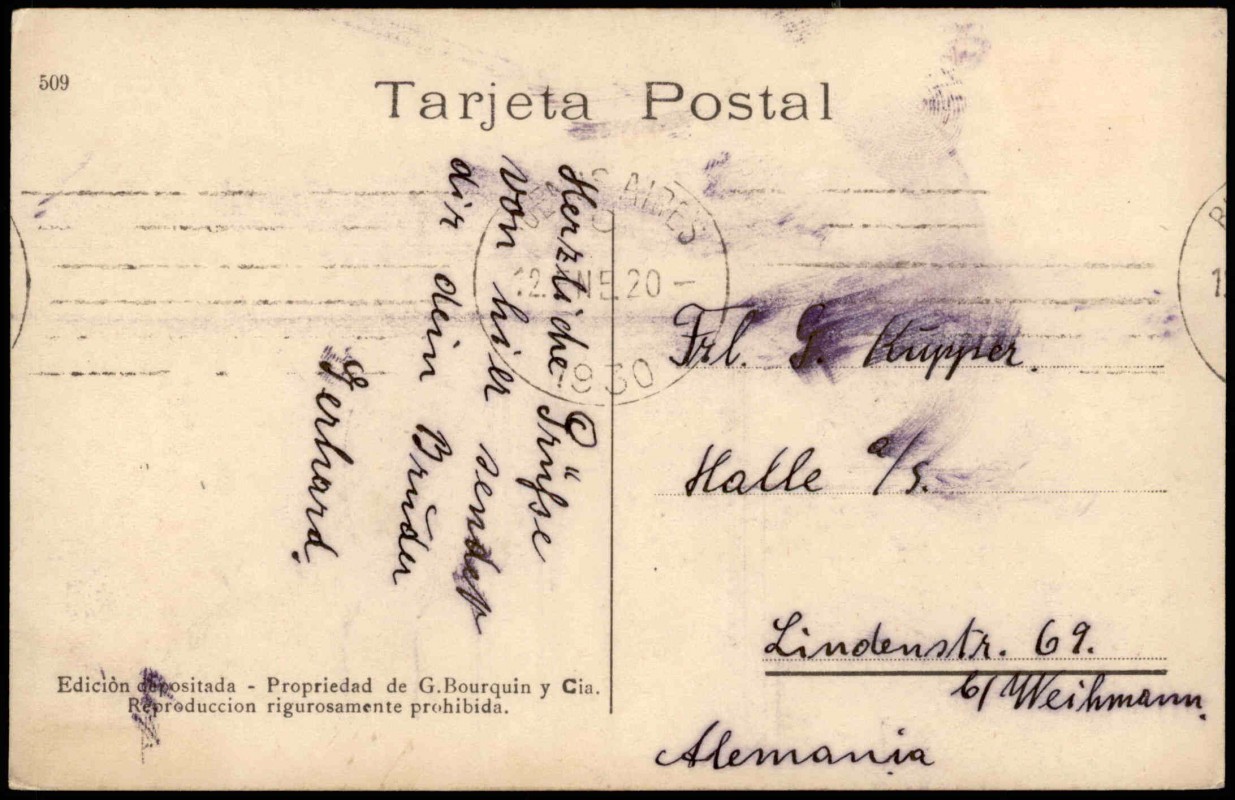 509
Tarjeta Postal
Herzliche Grüsse
von hier sendet
dir dein Brŭder
Gerhard.
AIRES
12. ENE. 20 -
1930
Frl. G. Kŭpper.
Halle a/S.
Lindenstr. 69.
b/ Weihmann.
Alemania
Edición depositada - Propriedad de G.Bourquin y Cia.
Reproduccion rigurosamente prohibida.